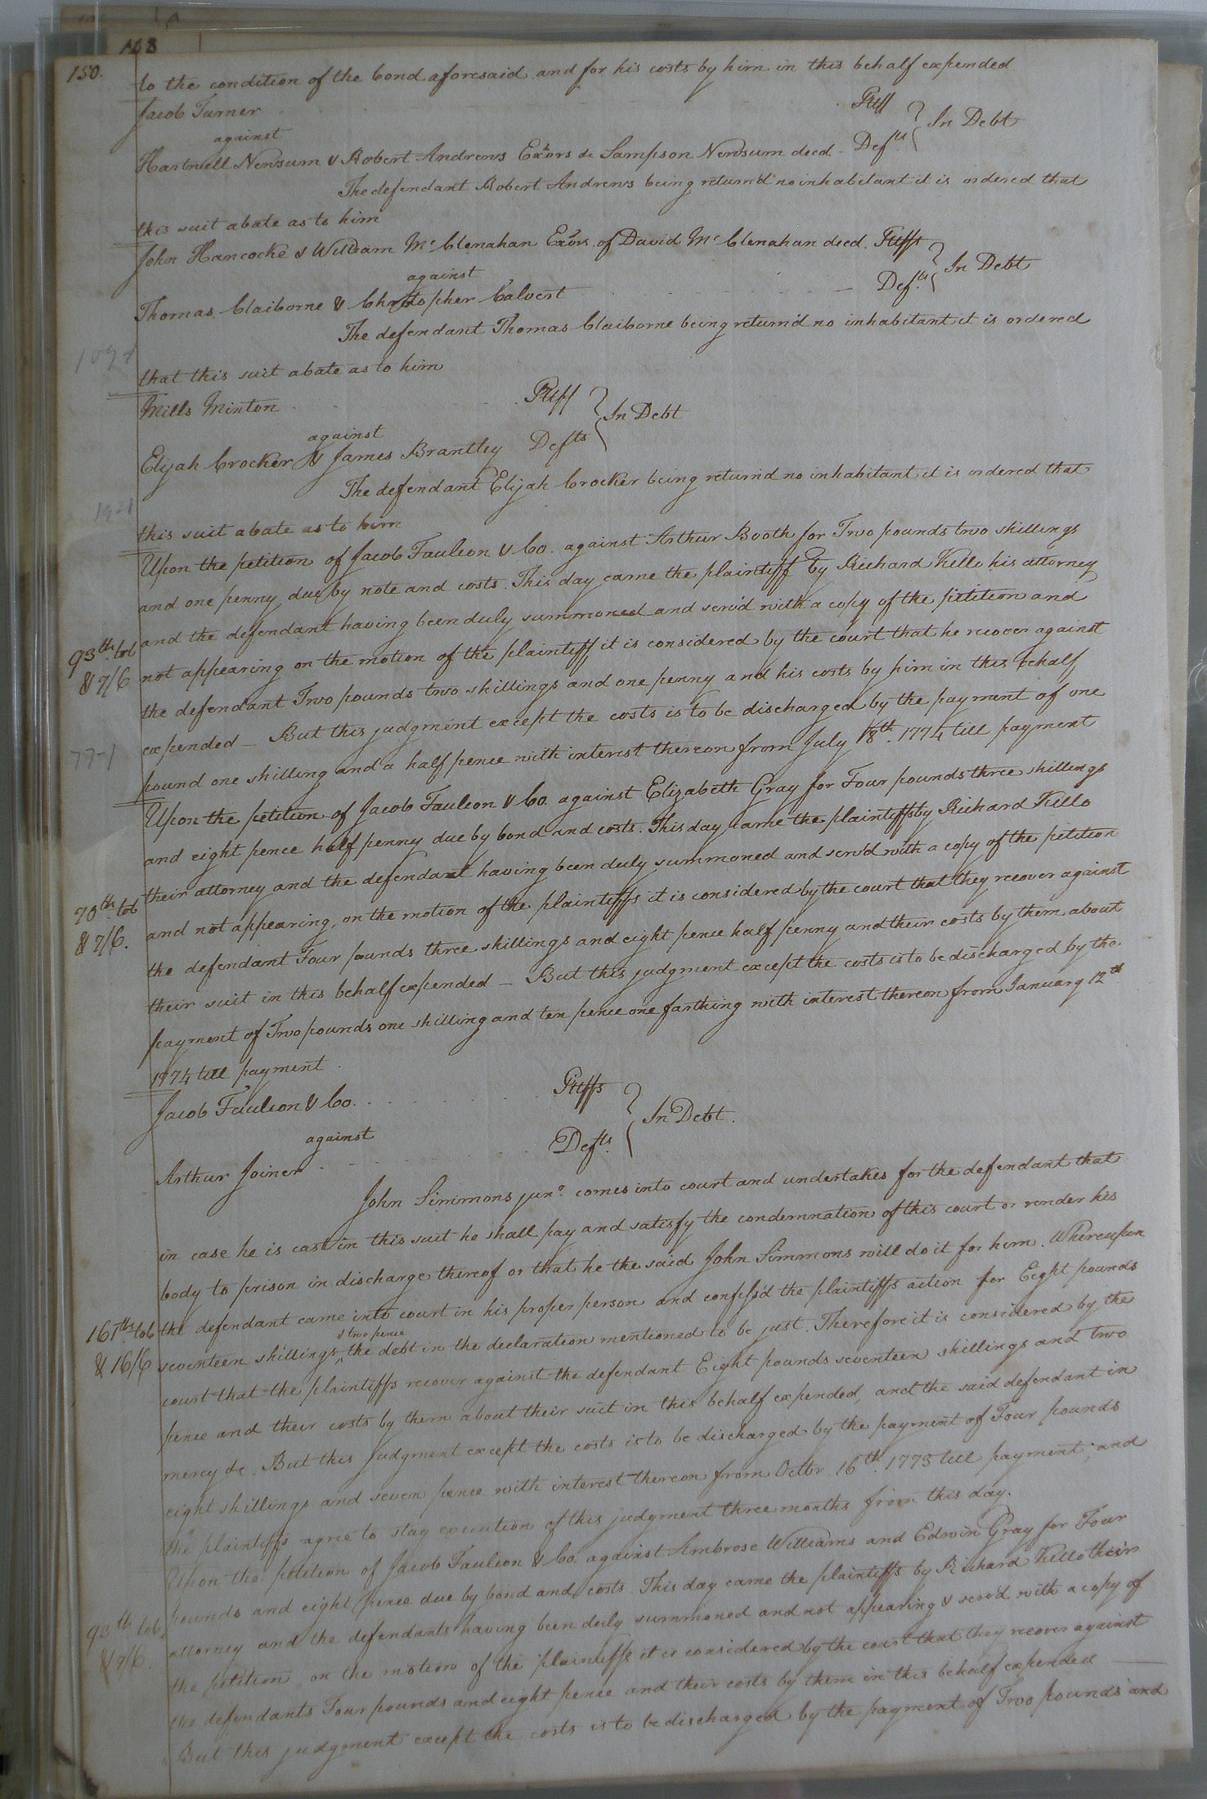 168
150.
to the condition of the bond aforesaid and for his costs by him in this behalf expended
Jacob Turner Pltff
against In Debt
Hartwell Newsum & Robert Andrews Exors &c Sampson Newsum deced Defts
The defendant Robert Andrews being return'd no inhabitant it is ordered that
this suit abate as to him
John Hancocke & William McClenahan Exors. of David McClenahan deced. Pltffs
against In Debt
Thomas Claiborne & Christopher Calvert Defts
The defendant Thomas Claiborne being return'd no inhabitant it is ordered
that this suit abate as to him
Mills Minton Pltff
against In Debt
Elijah Crocker & James Brantley Defts
The defendant Elijah Crocker being return'd no inhabitant it is ordered that
this suit abate as to him
Upon the petition of Jacob Faulcon & Co. against Arthur Booth for Two pounds two shillings
and one penny due by note and costs. This day came the plaintiff by Richard Kello his attorney
and the defendant having been duly summoned and serv'd with a copy of the petition and
93th. tob
& 7/6
not appearing on the motion of the plaintiff it is considered by the court that he recover against
the defendant Two pounds two shillings and one penny and his costs by him in this behalf
expended – But this judgment except the costs is to be discharged by the payment of one
pound one shilling and a half pence with interest thereon from July 18th. 1774 till payment
Upon the petition of Jacob Faulcon & Co. against Elizabeth Gray for Four pounds three shillings
and eight pence half penny due by bond and costs. This day came the plaintiffs by Richard Kello
their attorney and the defendant having been duly summoned and serv'd with a copy of the petition
70th. tob
& 7/6.
and not appearing, on the motion of the plaintiffs it is considered by the court that they recover against
the defendant Four pounds three shillings and eight pence half penny and their costs by them about
their suit in this behalf expended – But this judgment except the costs is to be discharged by the
payment of Two pounds one shilling and ten pence one farthing with interest thereon from January 12th
1774 till payment
Jacob Faulcon & Co. Pltffs
against In Debt.
Arthur Joiner Defts.
John Simmons junr. comes into court and undertakes for the defendant that
in case he is cast in this suit he shall pay and satisfy the condemnation of this court or render his
body to prison in discharge thereof or that he the said John Simmons will do it for him. Whereupon
161th. tob
& 16/6
the defendant came into court in his proper person and confess'd the plaintiffs action for Eight pounds
seventeen shillings & two pence the debt in the declaration mentioned to be just. Therefore it is considered by the
court that the plaintiffs recover against the defendant Eight pounds seventeen shillings and two
pence and their costs by them about their suit in this behalf expended, and the said defendant in
mercy &c. But this judgment except the costs is to be discharged by the payment of Four pounds
eight shillings and seven pence with interest thereon from Octbr. 16th. 1773 till payment; and
the plaintiffs agree to stay execution of this judgment three months from this day.
Upon the petition of Jacob Faulcon & Co. against Ambrose Williams and Edwin Gray for Four
pounds and eight pence due by bond and costs. This day came the plaintiffs by Richard Kello their
93th tob.
& 7/6.
attorney and the defendants having been duly summoned and not appearing & serv'd with a copy of
the petition, on the motion of the plaintiffs it is considered by the court that they recover against
the defendants Four pounds and eight pence and their costs by them in this behalf expended
But this judgment except the costs is to be discharged by the payment of Two pounds and